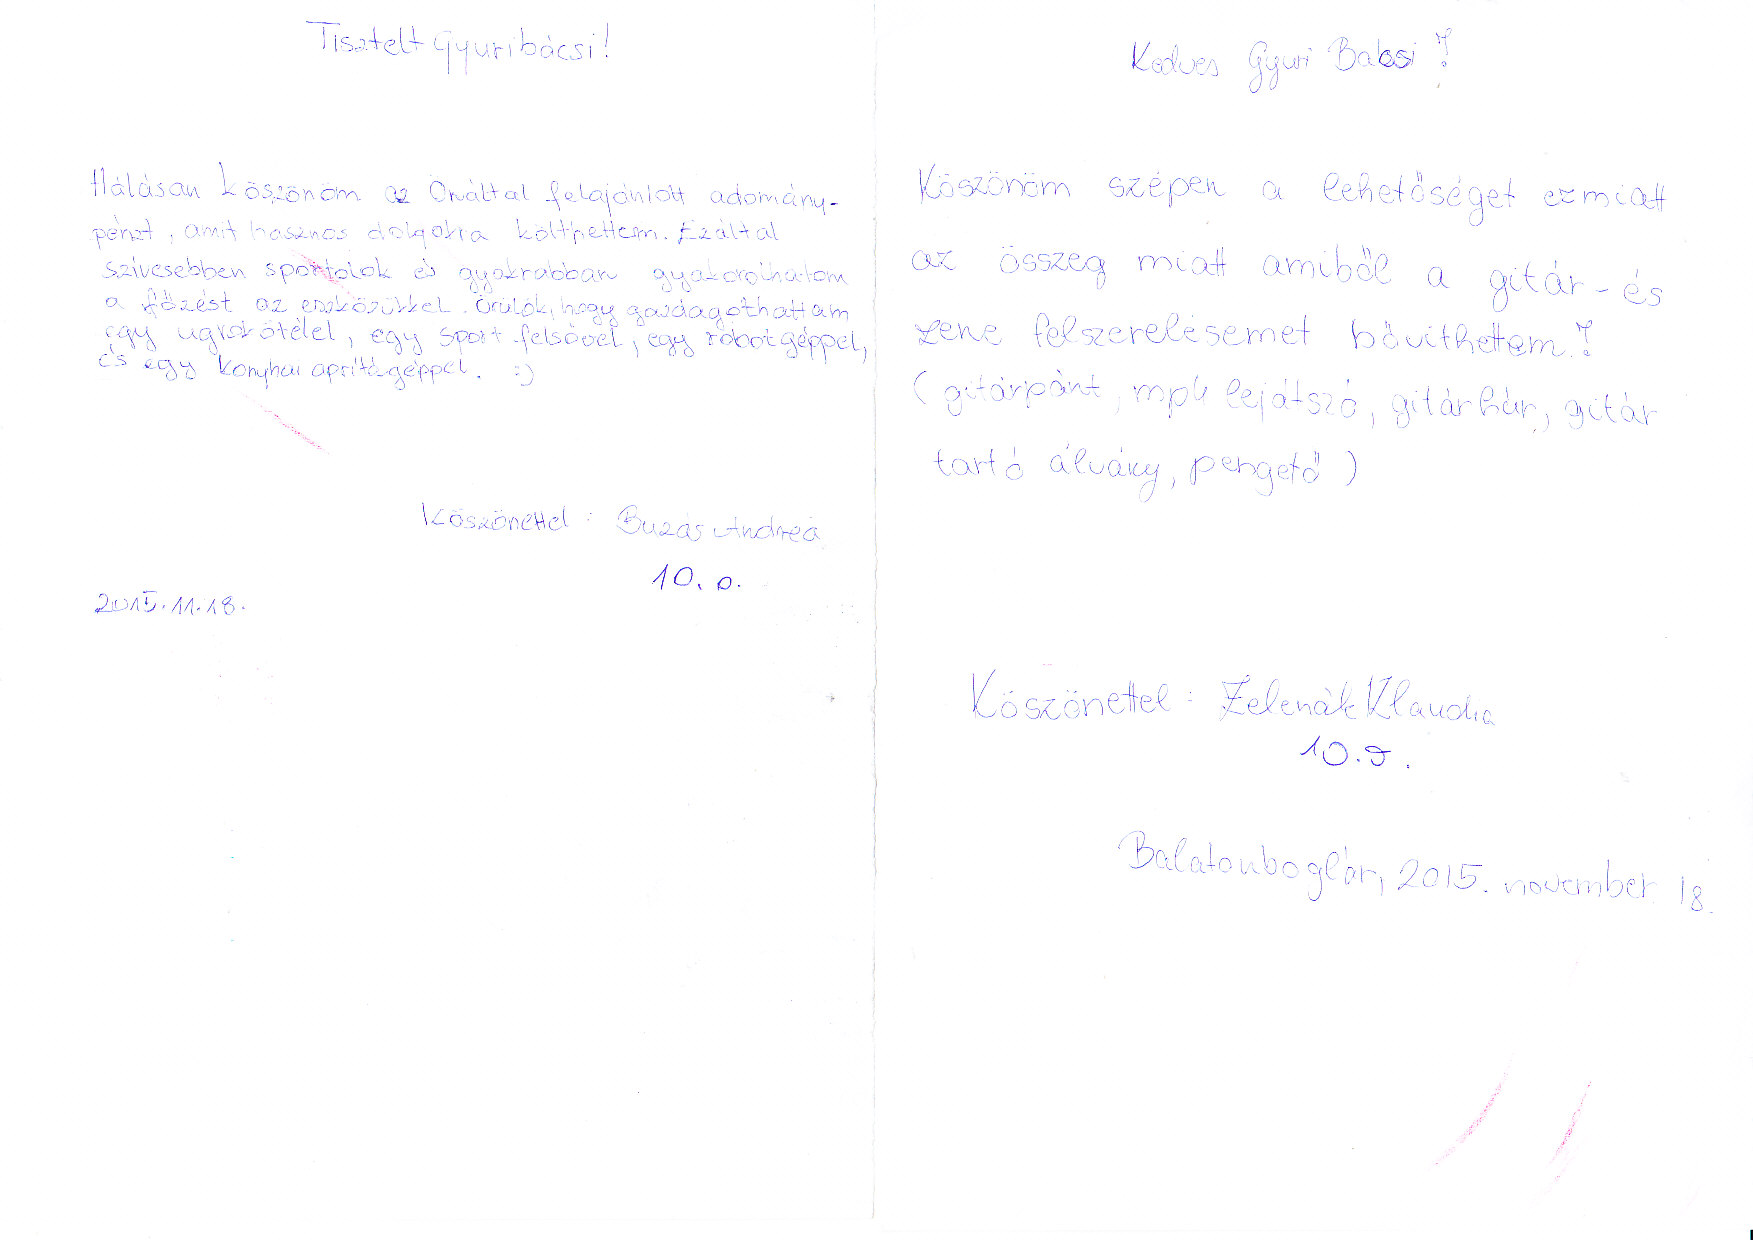 Tisztelt Gyuribácsi!
Hálásan köszönöm az Önáltal felajánlott adomány-
pénzt, amit hasznos dolgokra költhettem. Ezáltal
szívesebben sportolok és gyakrabban gyakorolhatom
a főzést az eszközükkel. Örülök, hogy gazdagothattam
egy ugrókötélel, egy sport felsővel, egy robotgéppel,
és egy konyhai aprítógéppel. :)
Köszönettel: Buzás Andrea
10. o.
2015.11.18.
Kedves Gyuri Bácsi!
Köszönöm szépen a lehetőséget ezmiatt
az összeg miatt amiből a gitár-és
zene felszerelésemet bővíthettem.!
(gitárpánt, mp4 lejátszó, gitárhúr, gitár
tartó álvány, pengető)
Köszönettel: Zelenák Klaudia
10.
Balatonboglár, 2015. november 18.